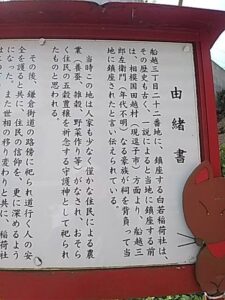 由緒書
船越三丁目二十二番地に、鎮座する白若稲荷社は、
その歴史も古く、一説によると当地に鎮座する前
は、相模国田越村(現逗子市)方面より、船越三
郎左衛門(年代不明)なる豪族が祠を背負って当
地に鎮座されたと言い伝えられている。
当時この地は人家も少なく僅かな住民による農
業(養蚕、雑穀、野菜作り等)がなされ、おそら
く住民の五穀豊穣を祈念する守護神として祀られ
その後、鎌倉街道の路傍に祀られ道行く人の安
全を護ると共に、住民の信仰を、更に深めるよ
になった。また世相の移り変わりと共に、稲荷社